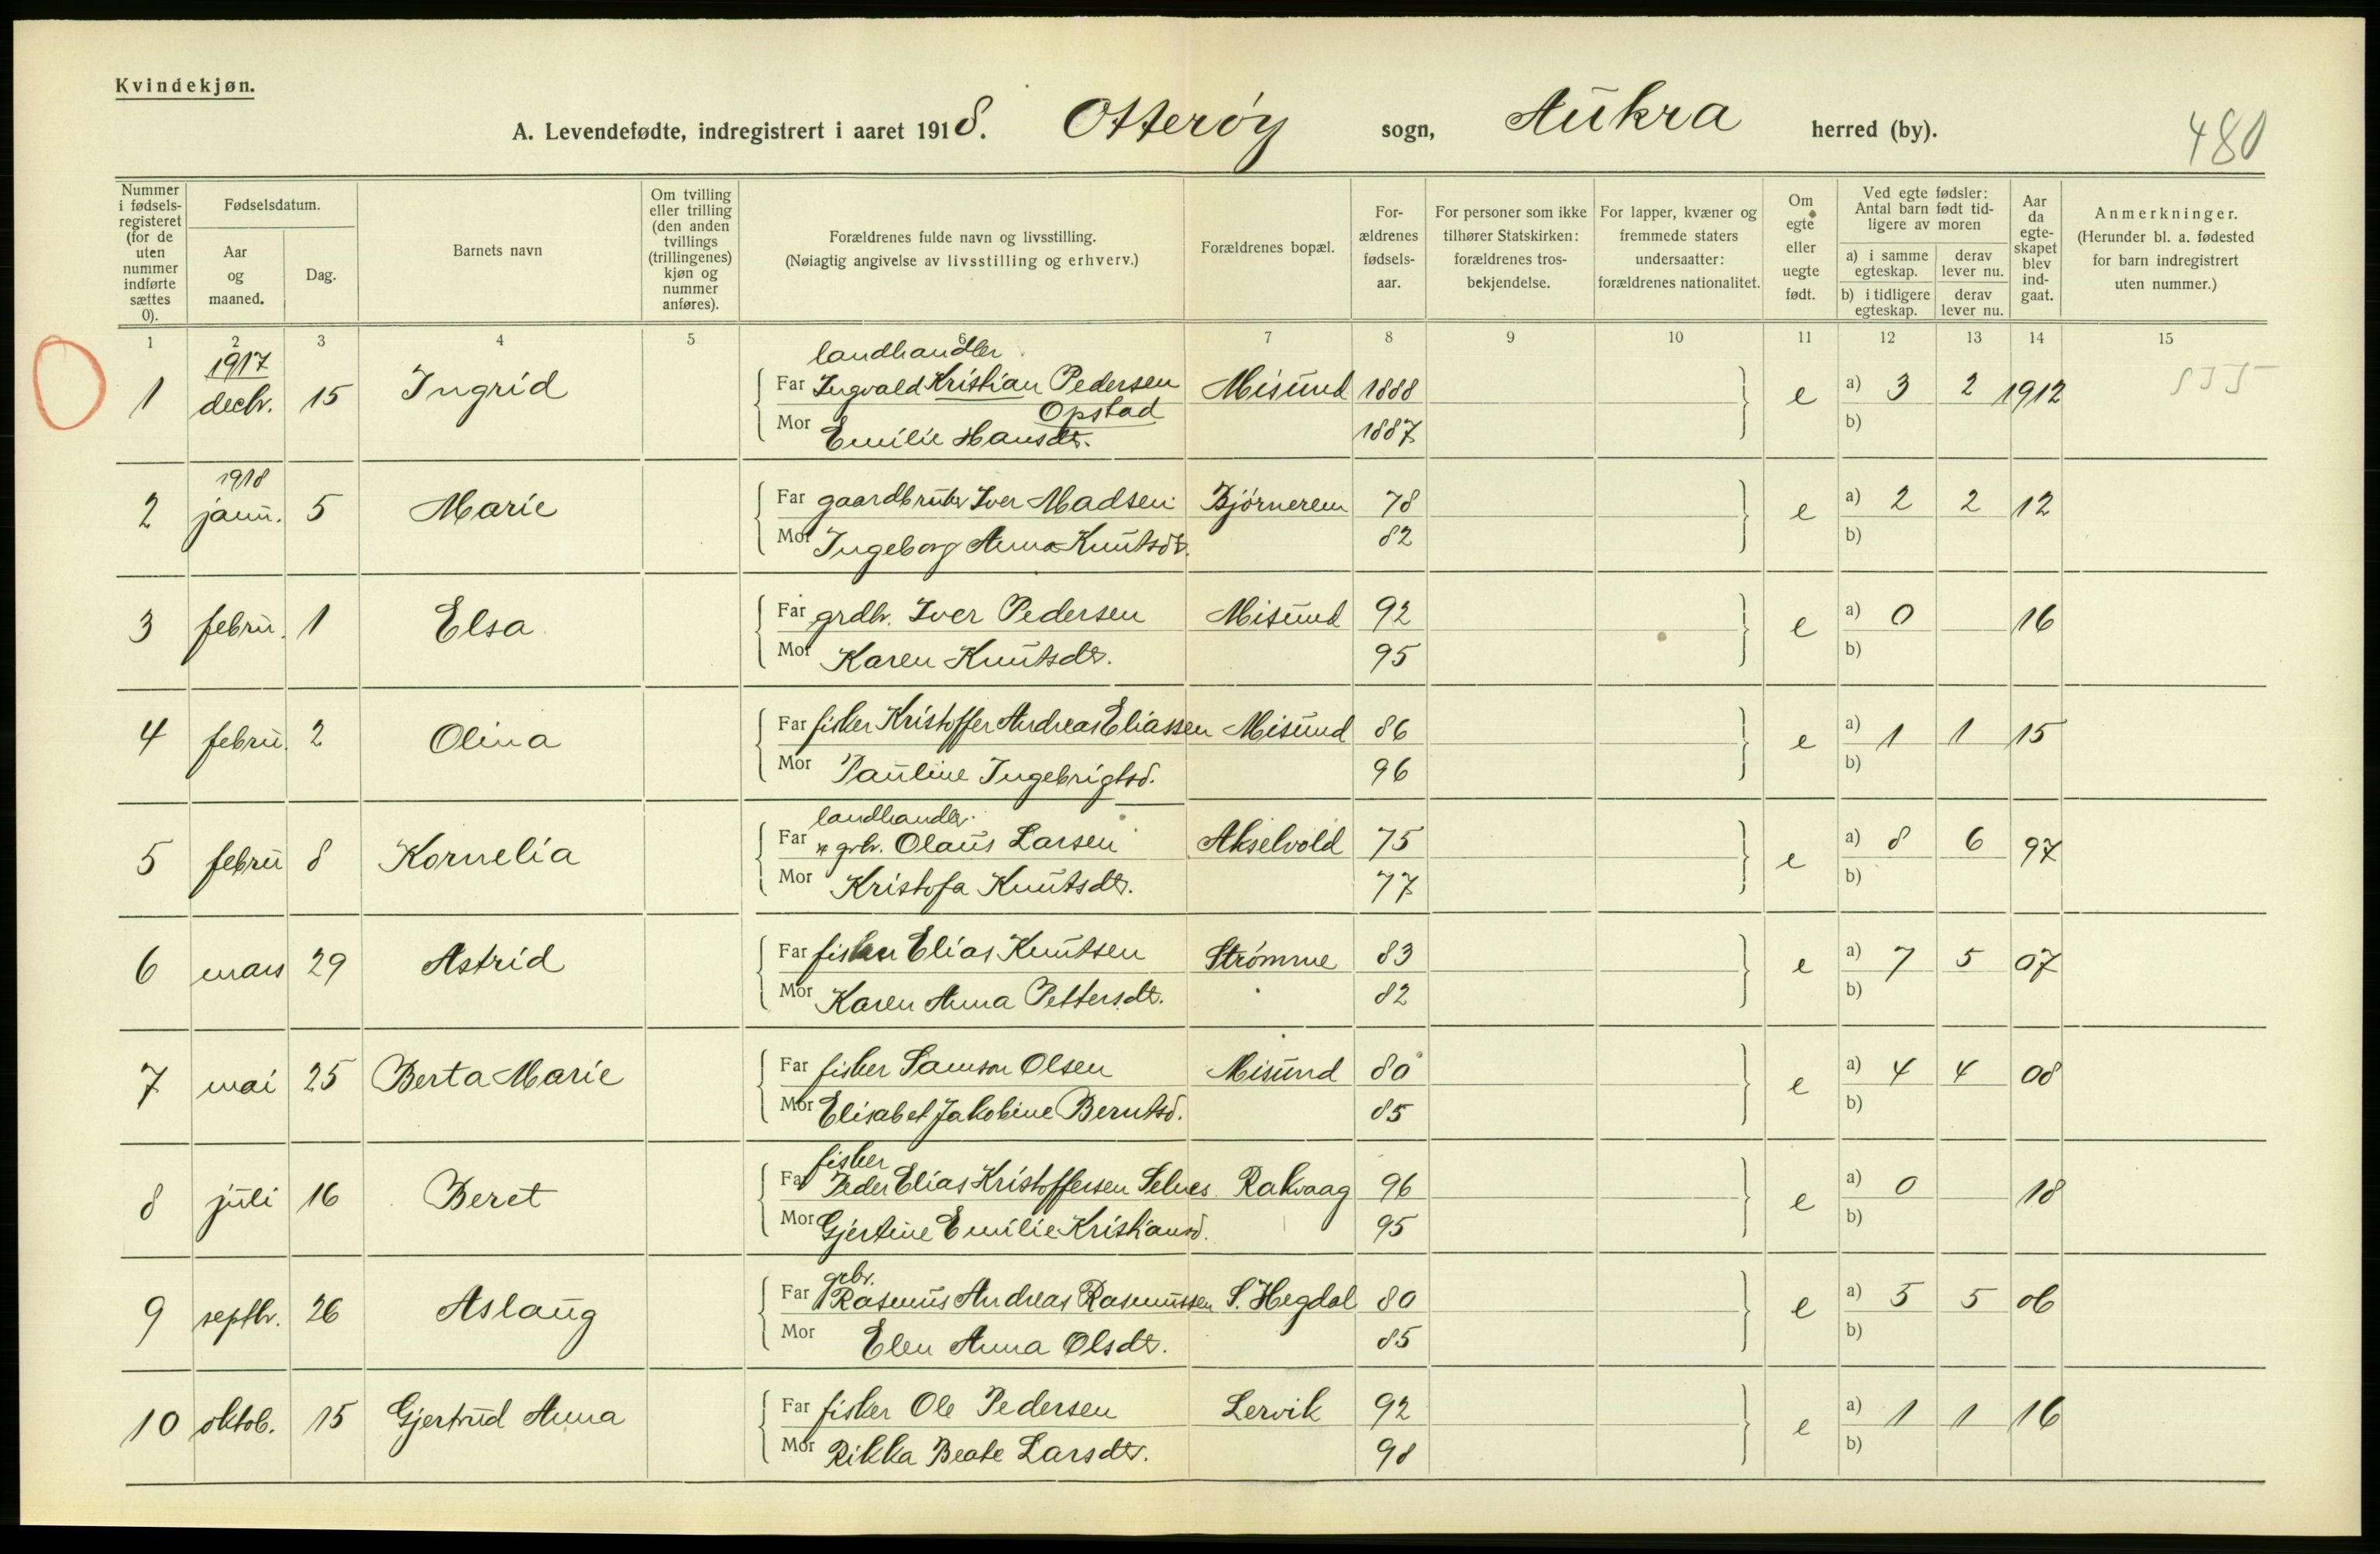 Kvindekjøn.
A. Levendefødte, indregistrert i aaret 1918. Otterøy sogn, Aukra herred (by).
480
Nummer i fødsels-registeret (for de uten nummer indførte sættes 0).
Fødselsdatum.
Aar og maaned.
Dag.
Barnets navn
Om tvilling eller trilling (den anden tvillings (trillingenes) kjøn og nummer anføres).
Forældrenes fulde navn og livsstilling.
(Nøiagtig angivelse av livsstilling og erhverv.)
Forældrenes bopæl.
For-ældrenes fødsels-aar.
For personer som ikke tilhører Statskirken: forældrenes tros-bekjendelse.
For lapper, kvæner og fremmede staters undersaatter: forældrenes nationalitet.
Om egte eller uegte født.
Ved egte fødsler: Antal barn født tid-ligere av moren
a) i samme egteskap.
derav lever nu.
b) i tidligere egteskap.
derav lever nu.
Aar da egte-skapet blev ind-gaat.
Anmerkninger.
(Herunder bl. a. fødested for barn indregistrert uten nummer.)
1 2 3 4 5 6 7 8 9 10 11 12 13 14 15
1917 landhandler
1 decbr. 15 Ingrid Far Ingvald Kristian Pedersen Misund 1888 e a) 3 2 1912
Opstad
Mor Emilie Hansdtr. 1887 b)
1918
2 janu. 5 Marie Far gaardbruker Iver Madsen Bjørnerem 78 e a) 2 2 12
Mor Ingeborg Anna Knutsdtr. 82 b)
3 febru. 1 Elsa Far grdbr. Iver Pedersen Misund 92 e a) 0 16
Mor Karen Knutsdtr. 95 b)
4 febru. 2 Olina Far fisker Kristoffer Andreas Eliassen Misund 86 e a) 1 1 15
Mor Pauline Ingebrigtsd. 96 b)
landhandlr.
5 febru 8 Kornelia Far & grbr. Olaus Larsen Akselvold 75 e a) 8 6 97
Mor Kristofa Knutsdtr. 77 b)
6 mars 29 Astrid Far fisker Elias Knutsen Strømme 83 e a) 7 5 07
Mor Karen Anna Pettersdtr. 82 b)
7 mai 25 Berta Marie Far fisker Samson Olsen Misund 80 e a) 4 4 08
Mor Elisabet Jakobine Berntsd. 85 b)
fisker
8 juli 16 Beret Far Peder Elias Kristoffersen Selnes Rakvaag 96 e a) 0 18
Mor Gjertine Emilie Kristiansd. 95 b)
grbr.
9 septbr. 26 Aslaug Far Rasmus Andreas Rasmussen S. Hegdal 80 e a) 5 5 06
Mor Elen Anna Olsdtr. 85 b)
10 oktob. 15 Gjertrud Anna Far fisker Ole Pedersen Lervik 92 e a) 1 1 16
Mor Rikka Beate Larsdtr. 98 b)